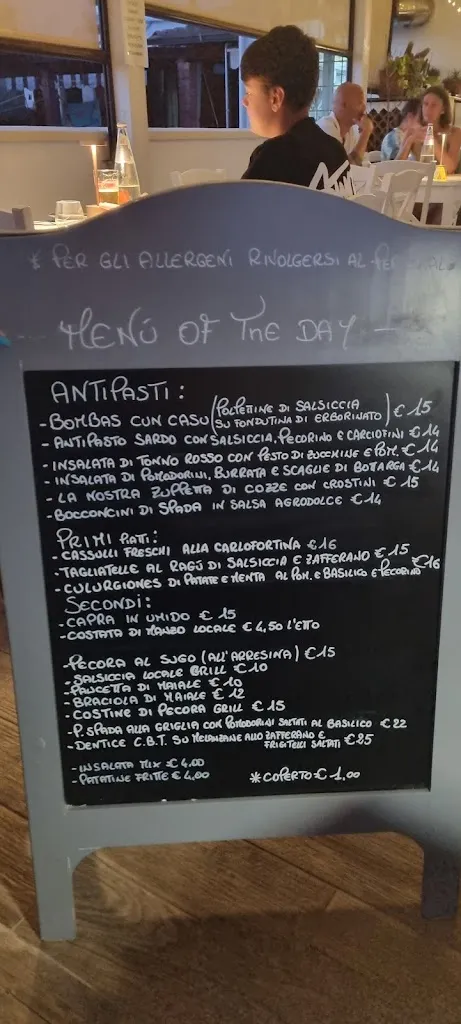 * PER GLI ALLERGENI RIVOLGERSI AL
MENÚ OF THE DAY
ANTIPASTI:
- BOMBAS CUN CASU (POLPETTINE DI SALSICCIA SU FONDUTINA DI ERBORINATO) € 15
- ANTIPASTO SARDO CON SALSICCIA, PECORINO E CARCIOFINI € 14
- INSALATA DI TONNO ROSSO CON PESTO DI ZUCCHINE E POM. € 14
- INSALATA DI POMODORINI, BURRATA E SCAGLIE DI BOTTARGA € 14
- LA NOSTRA ZUPPETTA DI COZZE CON CROSTINI € 15
- BOCCONCINI DI SPADA IN SALSA AGRODOLCE € 14
PRIMI PIATTI:
- CASSULLI FRESCHI ALLA CARLOFORTINA € 16
- TAGLIATELLE AL RAGÚ DI SALSICCIA E ZAFFERANO € 15
- CULURGIONES DI PATATE E MENTA AL POM. E BASILICO E PECORINO €16
SECONDI:
- CAPRA IN UMIDO € 15
- COSTATA DI MANZO LOCALE € 4,50 L'ETTO
- PECORA AL SUGO (ALL'ARRESINA) € 15
- SALSICCIA LOCALE GRILL € 10
- PANCETTA DI MAIALE € 10
- BRACIOLA DI MAIALE € 12
- COSTINE DI PECORA GRILL € 15
- P. SPADA ALLA GRIGLIA CON POMODORINI SALTATI AL BASILICO € 22
- DENTICE C.B.T. SU MELANZANE ALLO ZAFFERANO E
FRIGITELLI SALTATI € 25
- INSALATA MIX € 4,00
- PATATINE FRITTE € 4,00 * COPERTO € 1,00